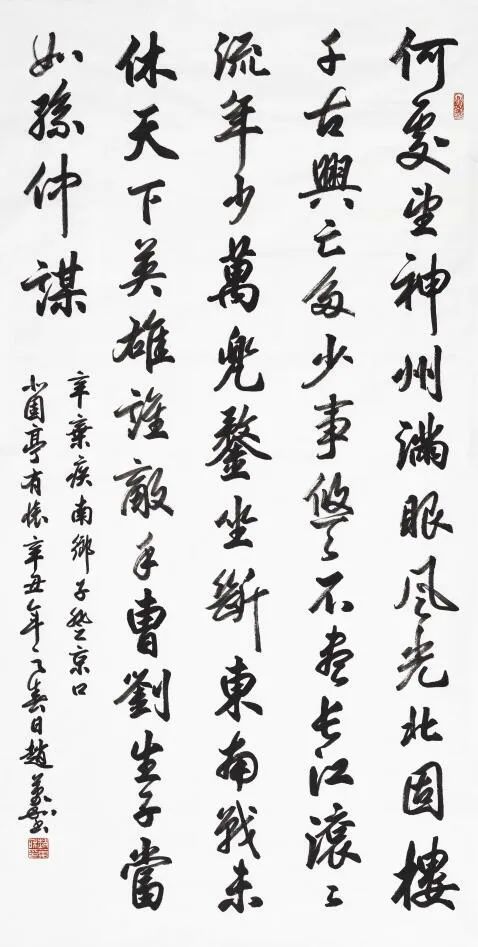 何處望神州滿眼風光北固樓
千古興亡多少事悠々不盡長江滾々
流年少萬兜鍪坐斷東南戰未
休天下英雄誰敵手曹劉生子當
如孫仲謀
辛棄疾南鄉子登京口
北固亭有懷辛丑年春日趙